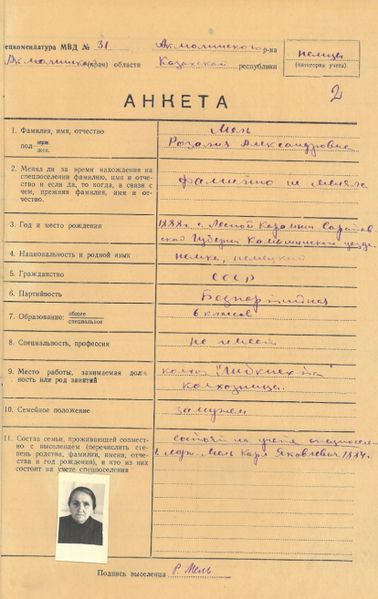 спецкомендатура МВД № 31 Акмолинского р-на
Акмолинск (края) области Казахской республики
немцы
(категория учета)
2
АНКЕТА
1. Фамилия, имя, отчество
Мель
пол муж. жен.
Розалия Александровна
2. Менял ли за время нахождения на спецпоселении фамилию, имя и отчество и если да, то когда, в связи с чем, прежняя фамилия, имя и отчество.
фамилию не меняла
3. Год и место рождения
1888 г. с. Лесной Карамыш Саратовской Губернии Камышинского уезда
4. Национальность и родной язык
немка, немецкий
5. Гражданство
СССР
6. Партийность
Беспартийная
7. Образование: общее специальное
6 классов
8. Специальность, профессия
не имеет
9. Место работы, занимаемая должность или род занятий
колхоз
колхозница.
10. Семейное положение
замужем
11. Состав семьи, проживающей совместно с выселенцем (перечислить степень родства, фамилии, имена, отчества и год рождения), и кто из них состоит на учете спецпоселения
состоит на учете спецпоселен
Мель Карл Яковлевич 1884 г.
Подпись выселенца Р. Мель